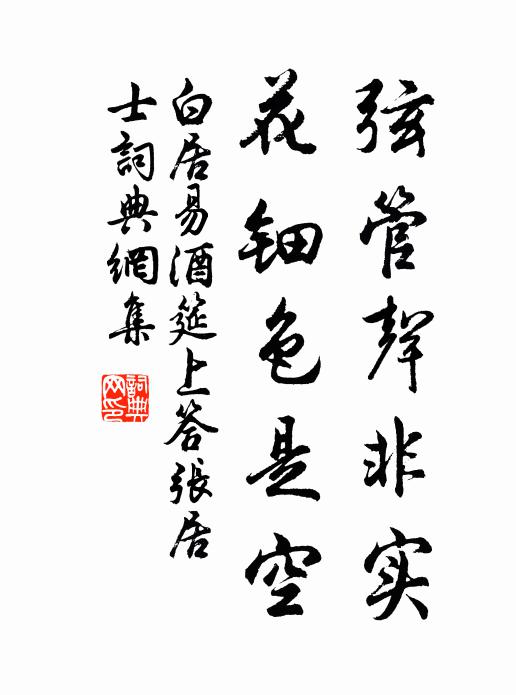 弦管聲非实
花钿色是空
白居易酒筵上答張居
士詞典網集
詞典
网印